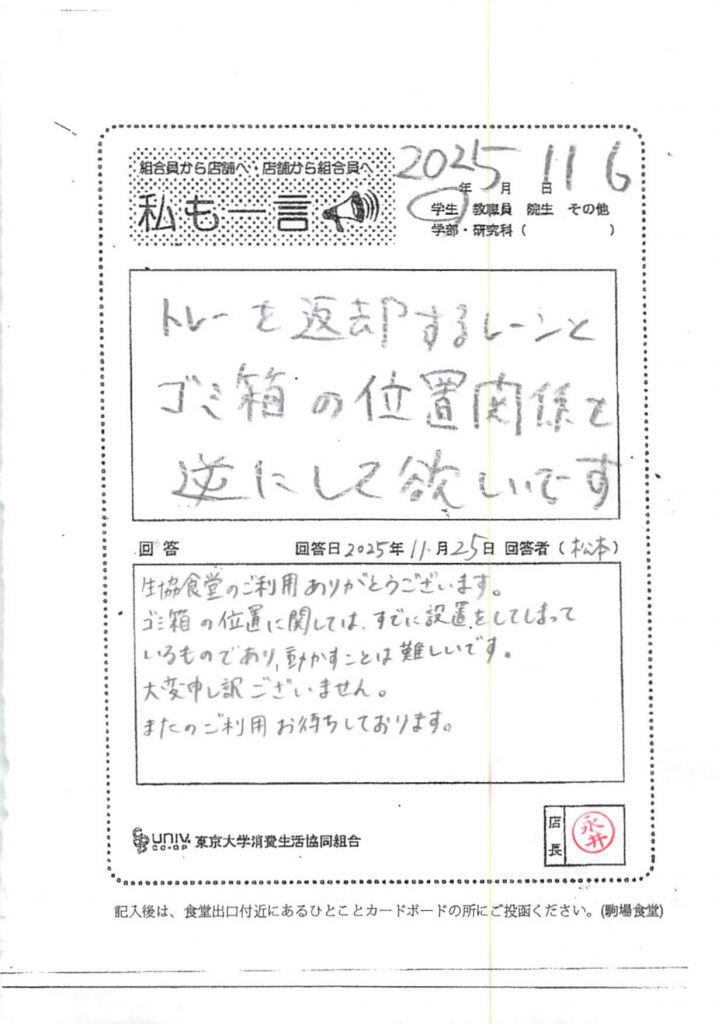 組合員から店舗へ・店舗から組合員へ
私も一言
2025 11 6
年 月 日
学生 教職員 院生 その他
学部・研究科( )
トレーを返却するレーンと
ゴミ箱の位置関係を
逆にして欲しいです
回答 回答日2025年11月25日 回答者(松本)
生協食堂のご利用ありがとうございます。
ゴミ箱の位置に関しては、すでに設置をしてしまって
いるものであり、動かすことは難しいです。
大変申し訳ございません。
またのご利用お待ちしております。
UNIV. CO-OP 東京大学消費生活協同組合
店長 永井
記入後は、食堂出口付近にあるひとことカードボードの所にご投函ください。(駒場食堂)